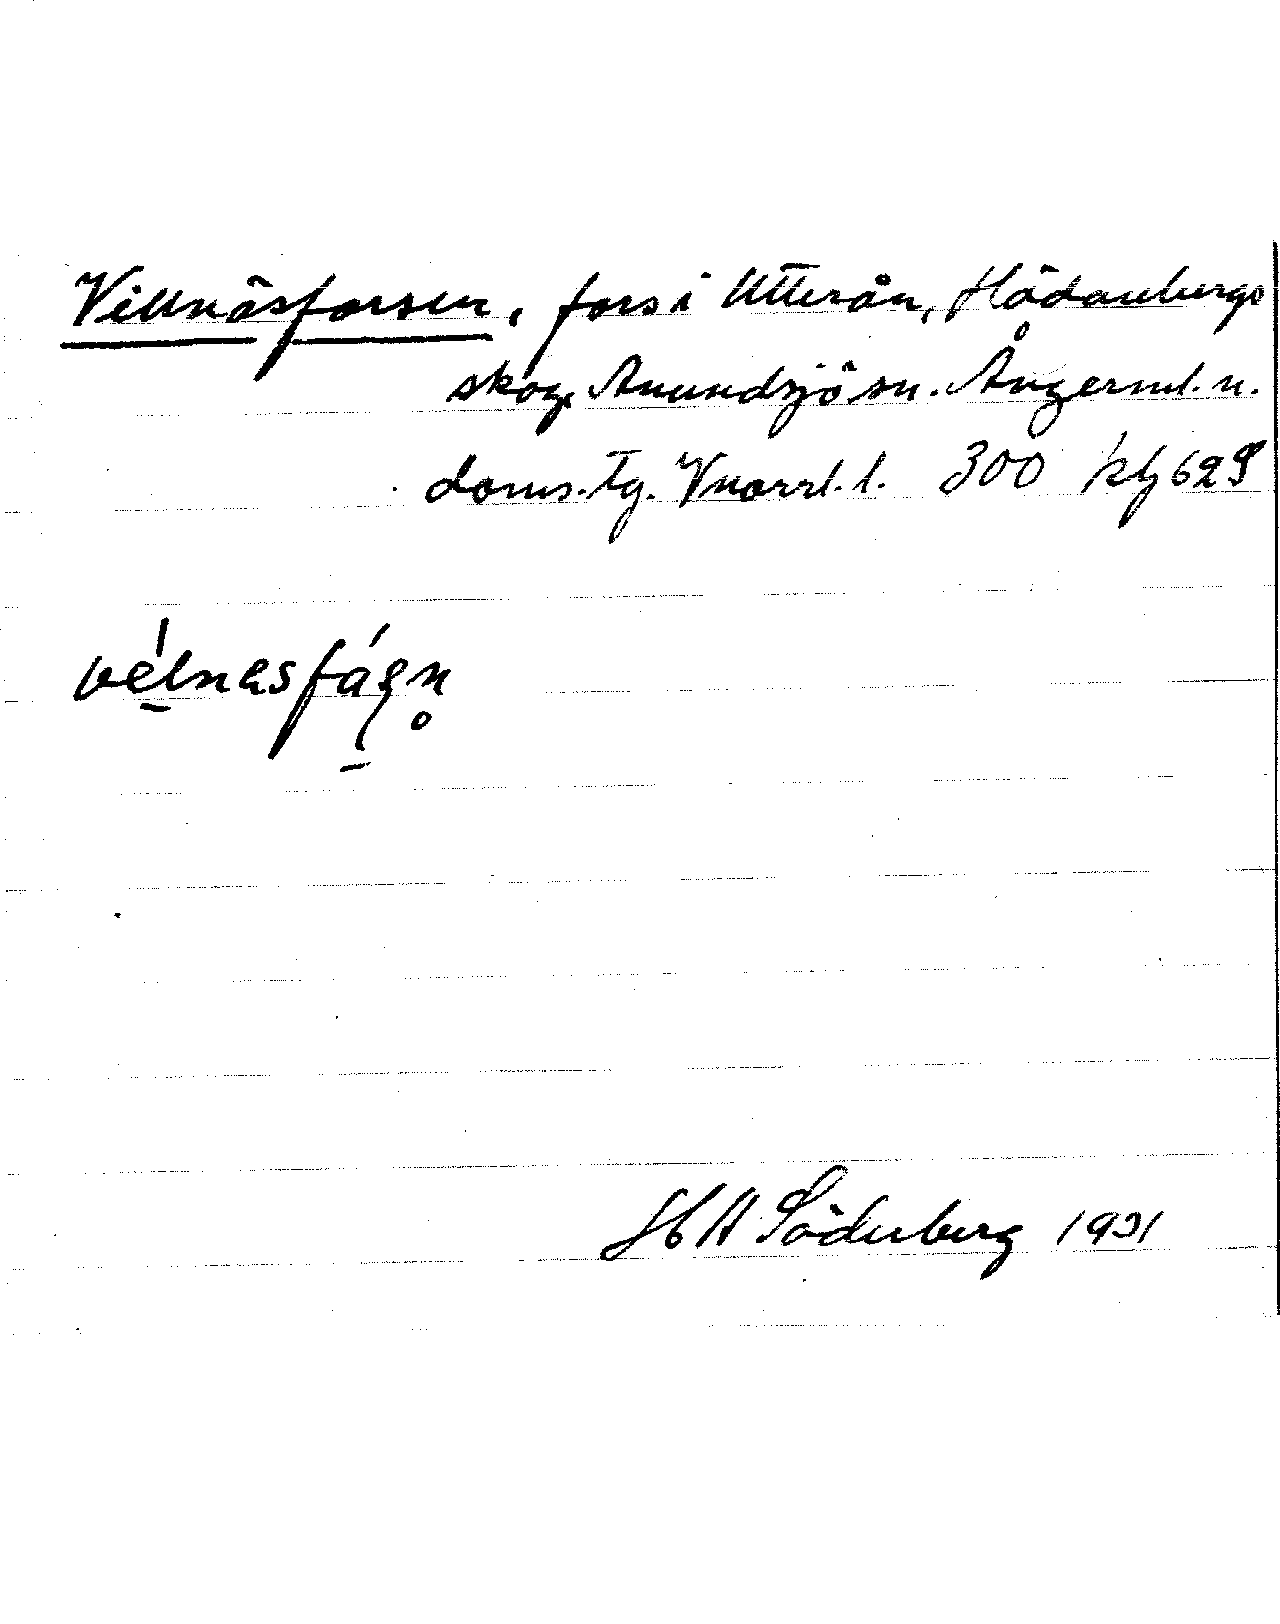 Villnäsforsen, fors i Utterån, Hädanbergs
skog, Anundsjö sn. Ångerml. n.
doms. tg. Vnorrl. l. 300 kbl 629
vélnesfáṣṇ
H A Söderberg 1931